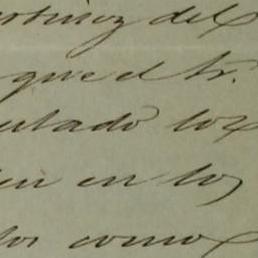 rtinez del
que el Sr.
utado los
en en los
los como